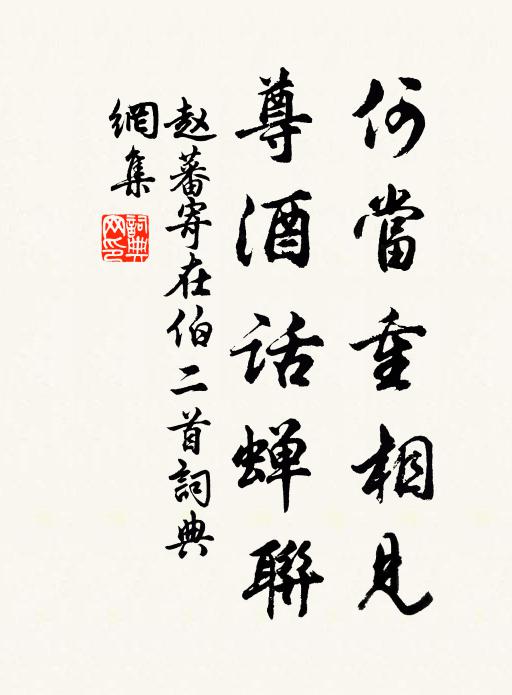 何當重相見
尊酒話蟬聯
赵蕃寄在伯二首詞典
網集
詞典網印